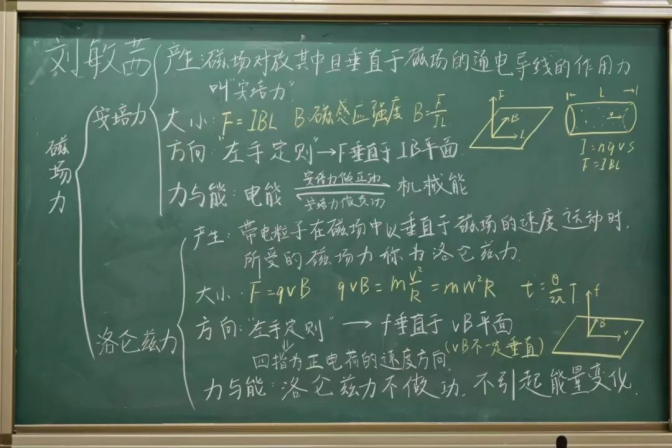 刘敏茜
产生:磁场对放其中且垂直于磁场的通电导线的作用力
叫"安培力"
安培力
大小: F=IBL B:磁感应强度 B=F/IL
方向:"左手定则"→F垂直于IB平面
力与能:电能 安培力做正功 机械能
安培力做负功
F
B
I
L
I=nqvs
F=IBL
磁场力
产生:带电粒子在磁场中以垂直于磁场的速度运动时,
所受的磁场力称为洛仑兹力.
大小: F=qvB qvB=mv²/R=mW²R t=θ/2π T
洛仑兹力
方向:"左手定则"→f垂直于vB平面
四指为正电荷的速度方向.(vB不一定垂直)
f
B
v
力与能:洛仑兹力不做功,不引起能量变化.